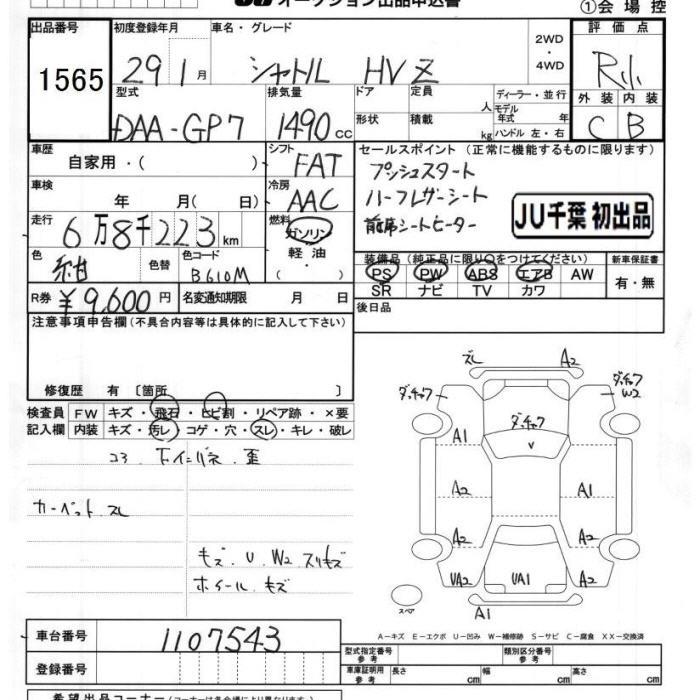 オークション出品申込書
①会場控
出品番号 初度登録年月 車名・グレード 評価点
1565
29 1月 シャトル HV Z
2WD
・4WD
R小
型式 排気量 ドア 定員 人 ディーラー・並行
モデル年式 年
外装 内装
DAA-GP7 1490cc
形状 積載 kg ハンドル 左・右
C B
車歴 シフト セールスポイント (正常に機能するものに限ります)
自家用・( ) FAT
プッシュスタート
車検 冷房
年 月(日) AAC
ハーフレザーシート
走行 燃料
6万8千223km ガソリン・軽油
前席シートヒーター
JU千葉 初出品
色 色替 色コード
紺 B610M
装備品 (純正品に限り○をつけてください) 新車保証書
PS PW ABS エアB AW
SR ナビ TV カワ
有・無
R券 ¥9,600円 名変通知期限 月 日
後日品
注意事項申告欄(不具合内容等は具体的に記入して下さい)
修復歴 有〔箇所 〕
検査員 FW キズ・飛石・ヒビ割・リペア跡・×要
記入欄 内装 キズ・汚レ・コゲ・穴・スレ・キレ・破レ
カーペットスレ
キズ.U.W2.スリキズ
ホイールキズ
スレ A2
ダッチャク
ダッチャク
W2
ダッチャク
A1 V
A2 A1
A2 A2
UA2 UA1 A2
スペア
A1
A-キズ E-エクボ U-凹み W-補修跡 S-サビ C-腐食 XX-交換済
車台番号 1107543
型式指定番号
参考
類別区分番号
参考
登録番号
車庫証明用
参考
長さ cm 幅 cm 高さ cm
希望出品コーナー(コーナーは各会場により異なります)